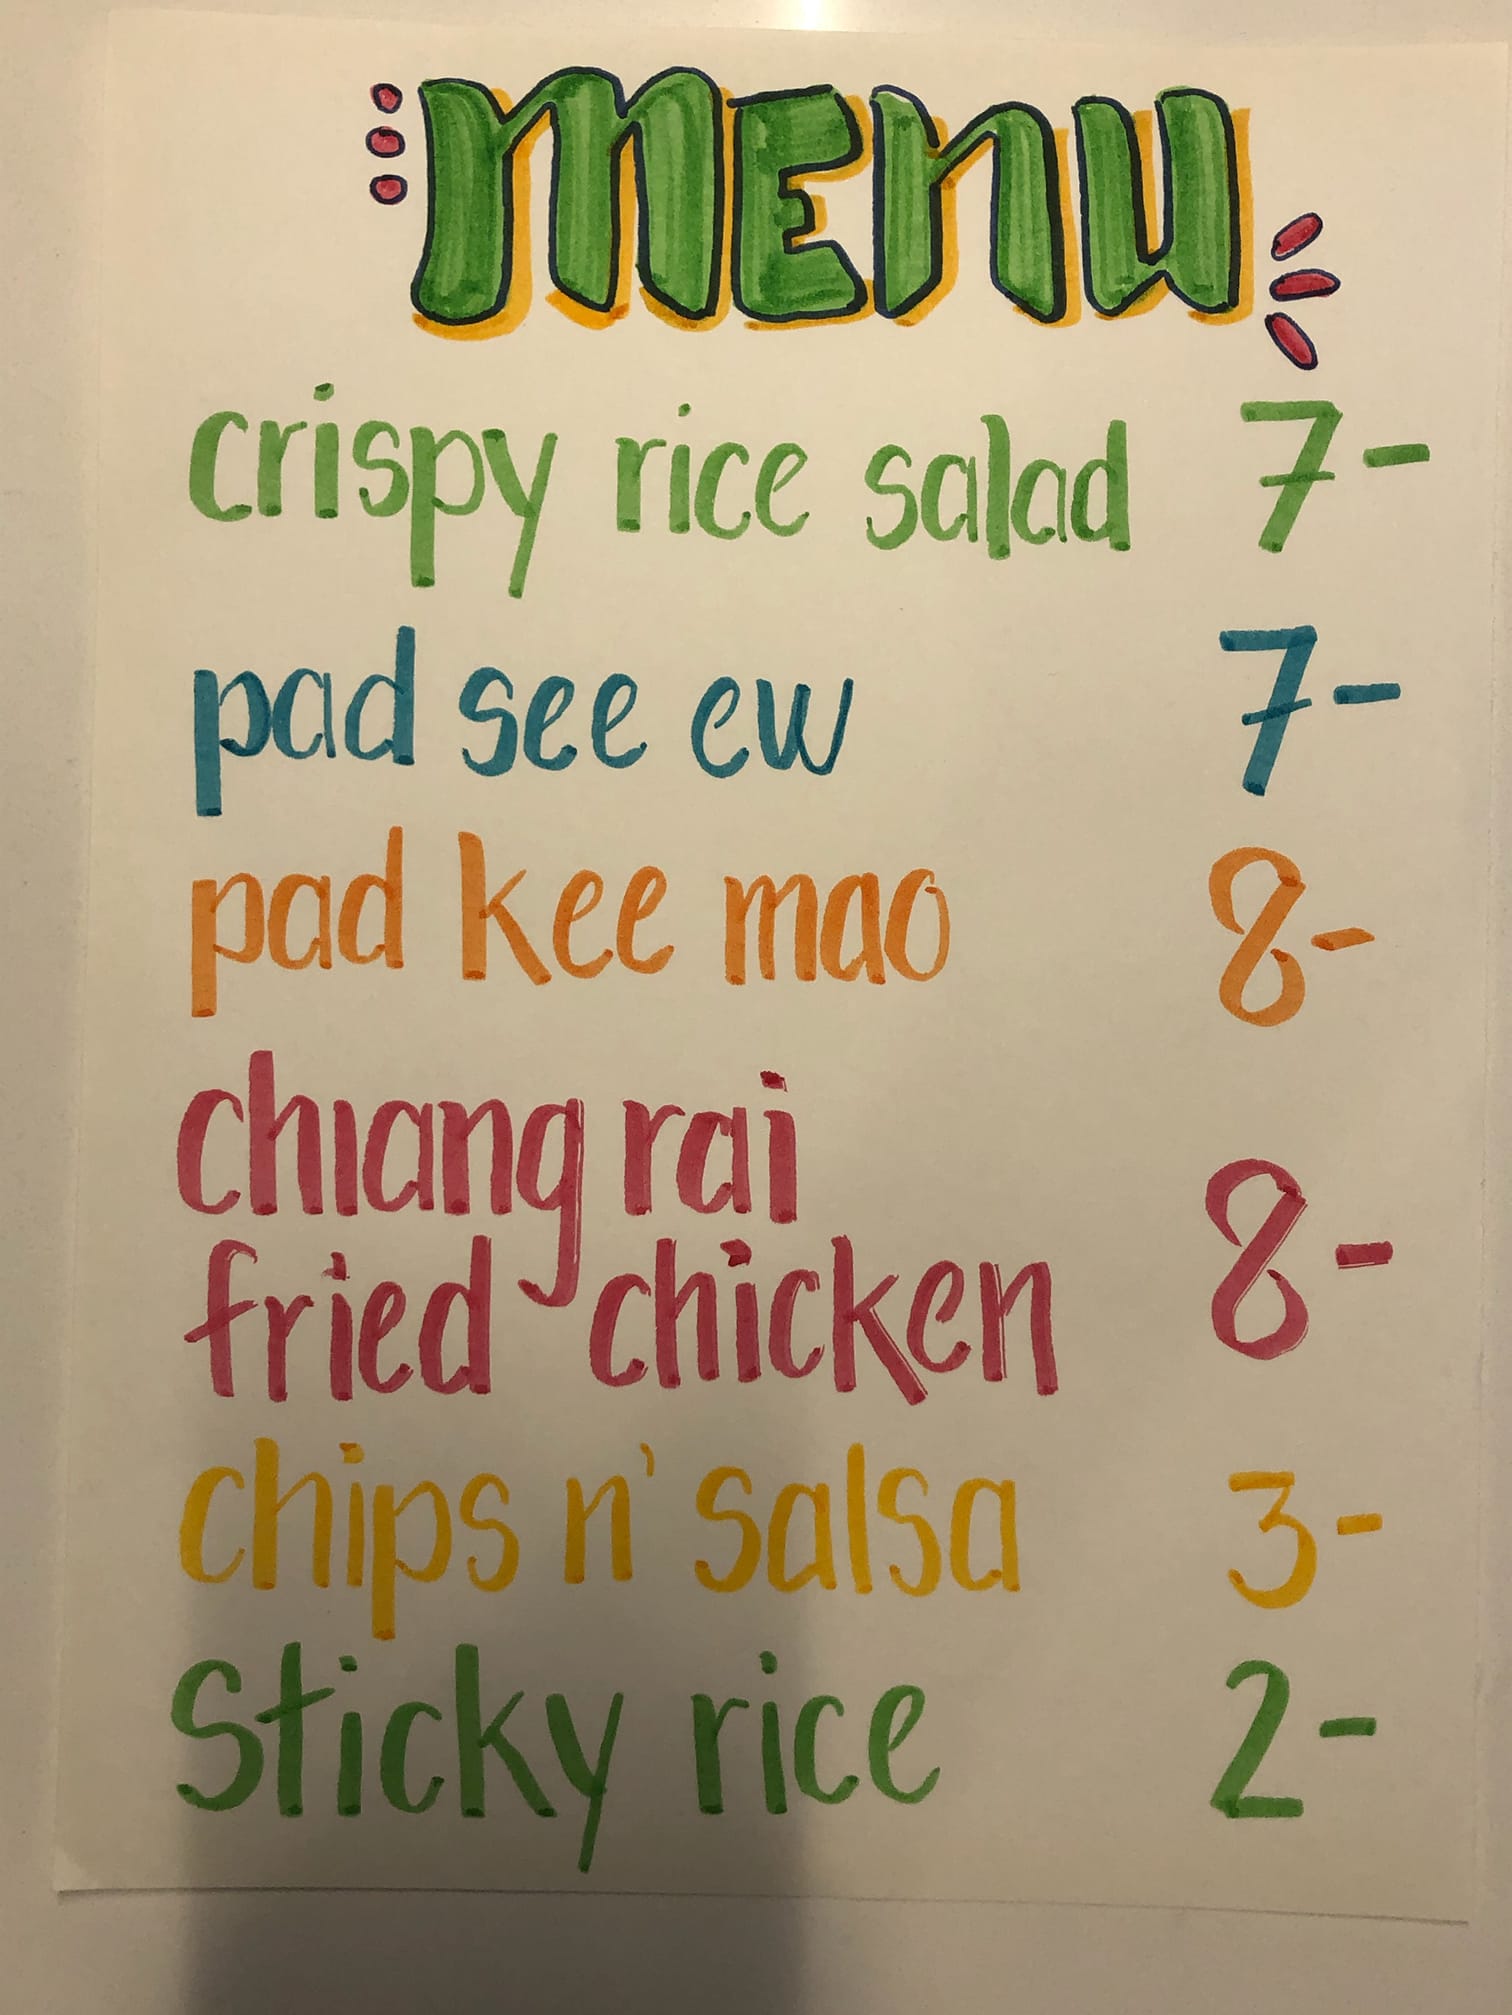 menu
crispy rice salad 7-
pad see ew 7-
pad kee mao 8-
chiang rai
fried chicken 8-
chips n' salsa 3-
Sticky rice 2-